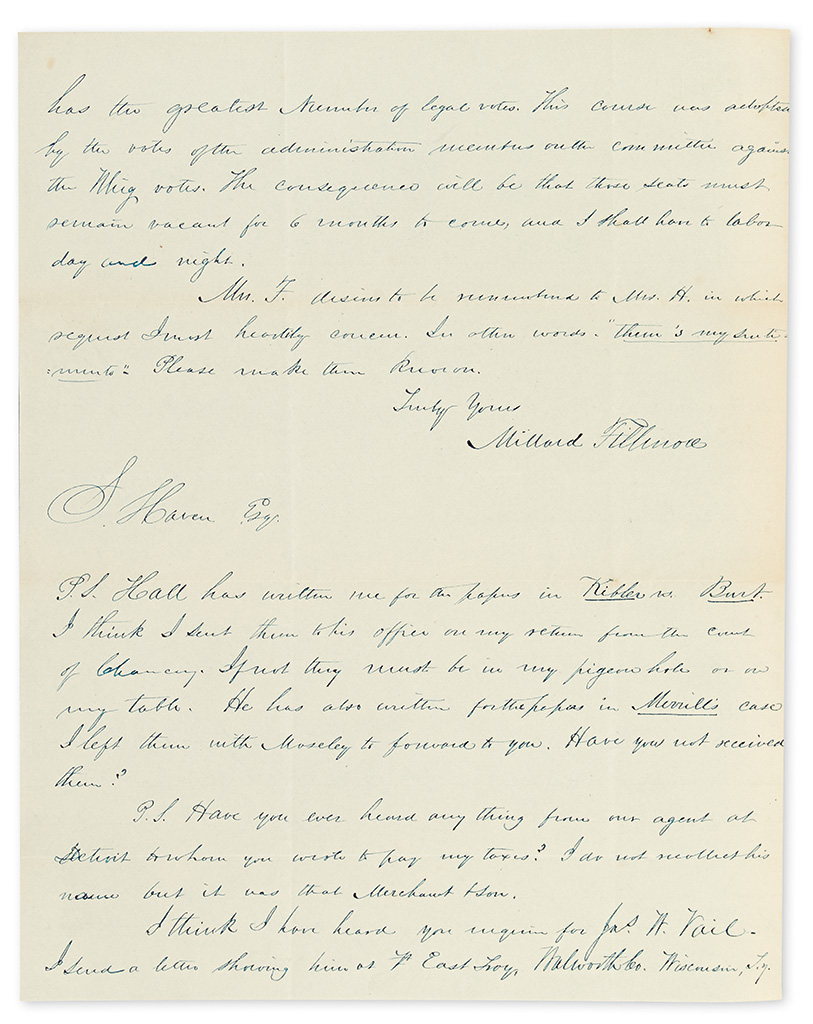 has the greatest Number of legal votes. This course was adopted
by the votes of the administration members on the committee against
the Whig votes. The consequence will be that those seats must
remain vacant for 6 months to come, and I shall have to labor
day and night.
Mrs. F. desires to be remembered to Mrs. H. in which
request I most heartily concur. In other words - "them's my senti-
:ments" Please make them known.
Truly Yours
Millard Fillmore
S. Haven Esq.
P.S. Hall has written me for the papers in Kibler vs. Burt.
I think I sent them to his office on my return from the court
of Chancery. If not they must be in my pigeon hole or on
my table. He has also written for the papers in Merrill's case
I left them with Moseley to forward to you. Have you not received
them?
P.S. Have you ever heard any thing from our agent at
Detroit to whom you wrote to pay my taxes? I do not recollect his
name but it was that Merchant & son.
I think I have heard you inquire for Jas. H. Vail -
I send a letter showing him at East Troy, Walworth Co. Wisconsin, Ty.